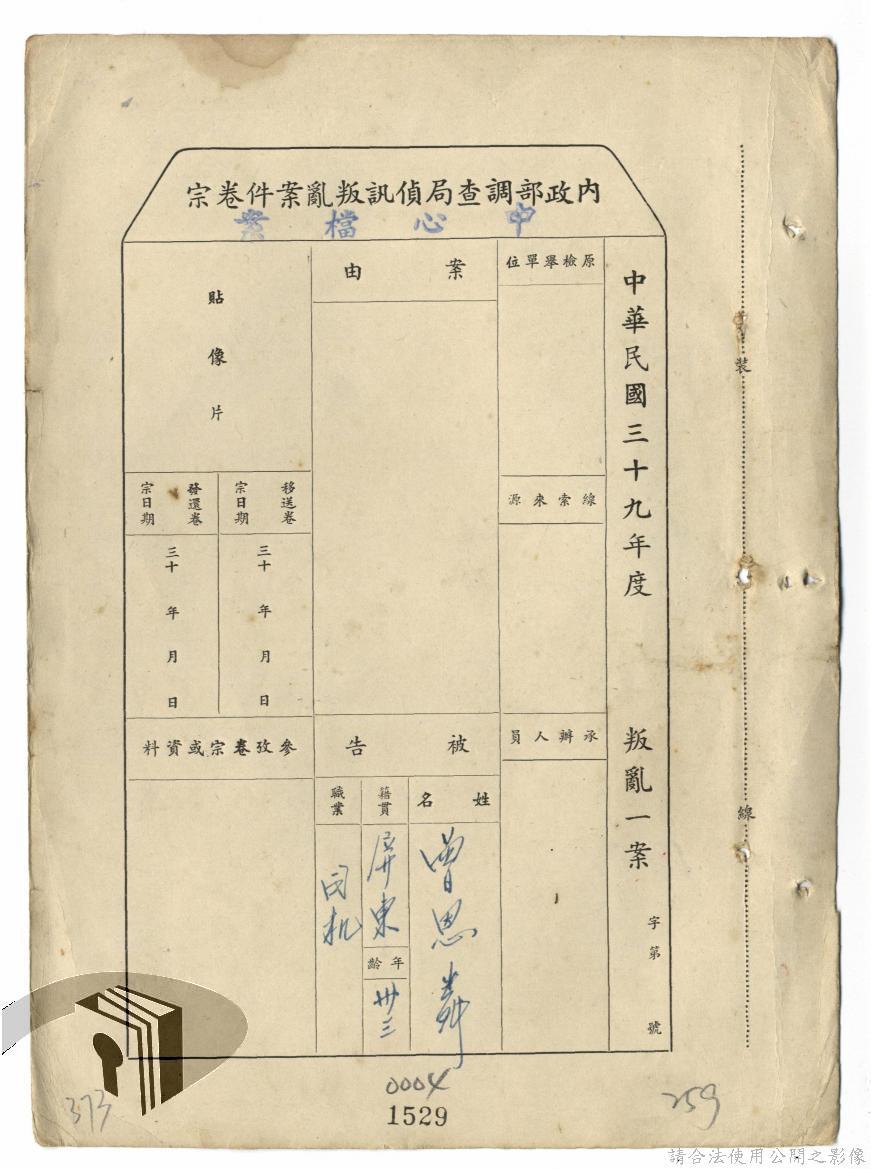 內政部調查局偵訊叛亂案件卷宗
中心檔案
中華民國三十九年度
叛亂一案
字第
號
原檢舉單位
線索來源
承辦人員
案由
被告
姓名
曾思
籍貫
屏東
年齡
卅三
職業
司机
貼像片
移送卷宗日期
三十年月日
發還卷宗日期
三十年月日
參攷卷宗或資料
裝
線
0004
1529
373
259
請合法使用公開之影像